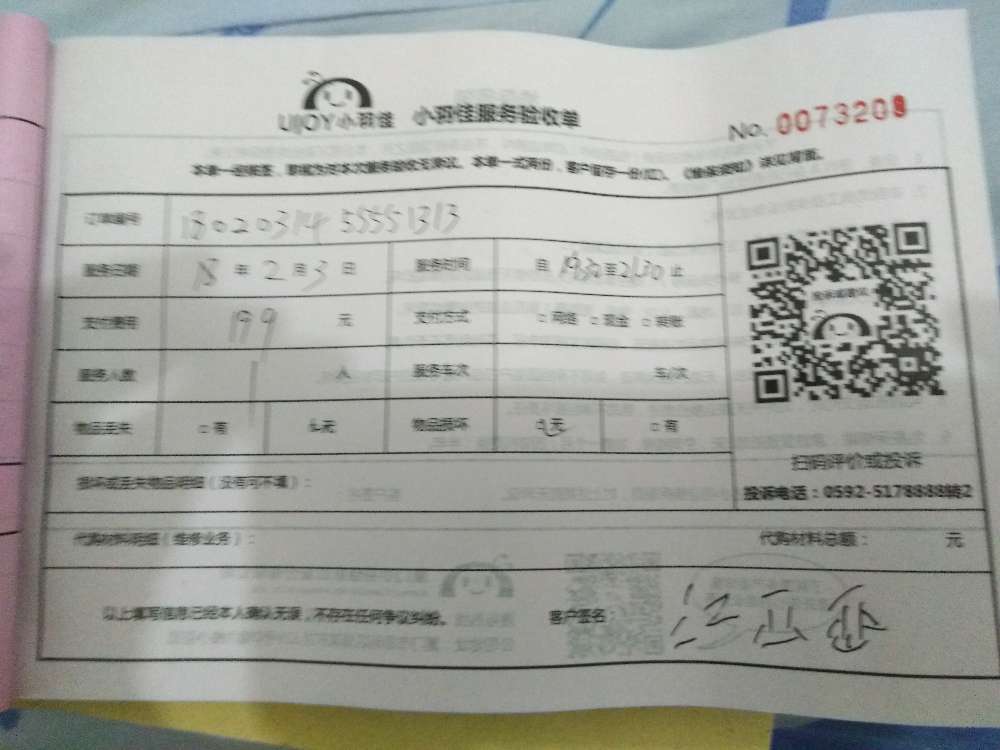 LIJOY小羽佳 小羽佳服务验收单
No. 0073208
本单一经签签，即视为对本次服务验收无异议，本单一式两份，客户留存一份(红)。《服务须知》详见背面。
订单编号 1802031455551313
服务日期 18 年 2 月 3 日 服务时间 自 19:30 至 21:30 止
支付费用 199 元 支付方式 □网络 □现金 □转账
服务人数 1 人 服务车次 车/次
物品丢失 □有 □无 物品损坏 □无 □有
扫码评价或投诉
损坏或丢失物品明细（没有可不填）：
投诉电话：0592-5178888转2
代购材料明细（维修业务）： 代购材料总额： 元
以上填写信息已经本人确认无误，不存在任何争议纠纷。 客户签名：